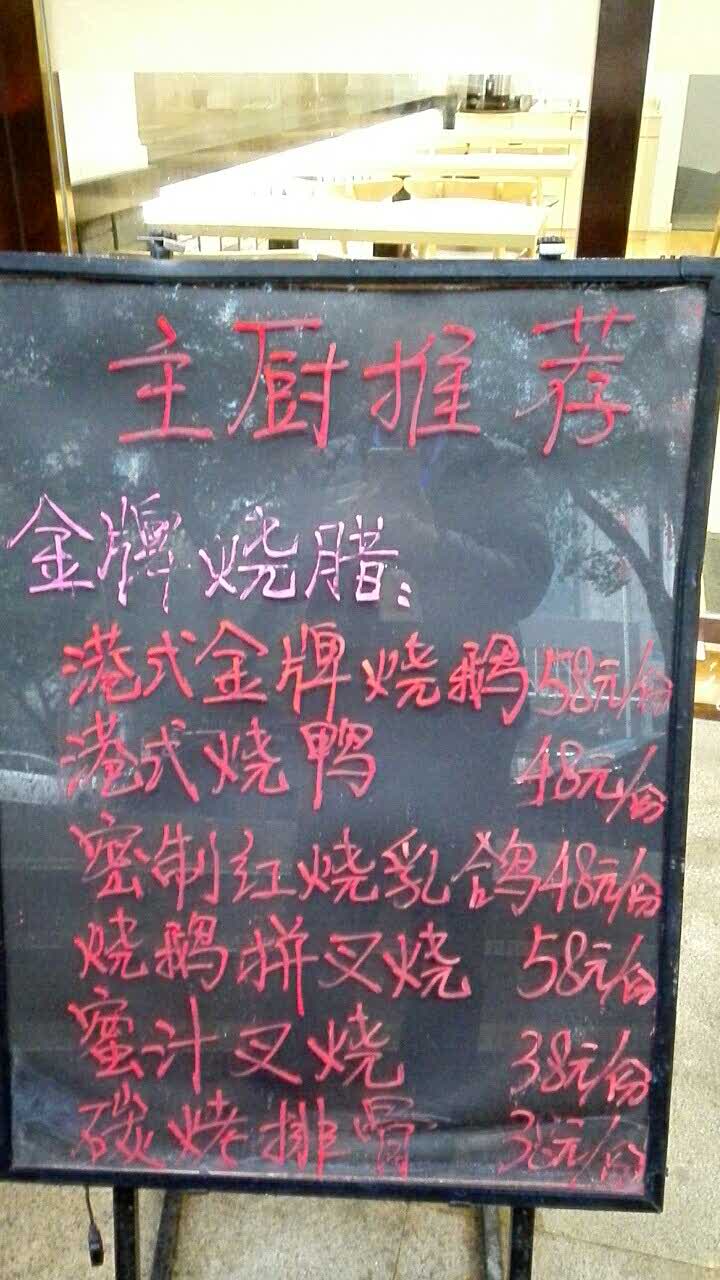 主厨推荐
金牌烧腊：
港式金牌烧鹅 58元/份
港式烧鸭 48元/份
密制红烧乳鸽 48元/份
烧鹅拼叉烧 58元/份
蜜汁叉烧 38元/份
碳烤排骨 38元/份